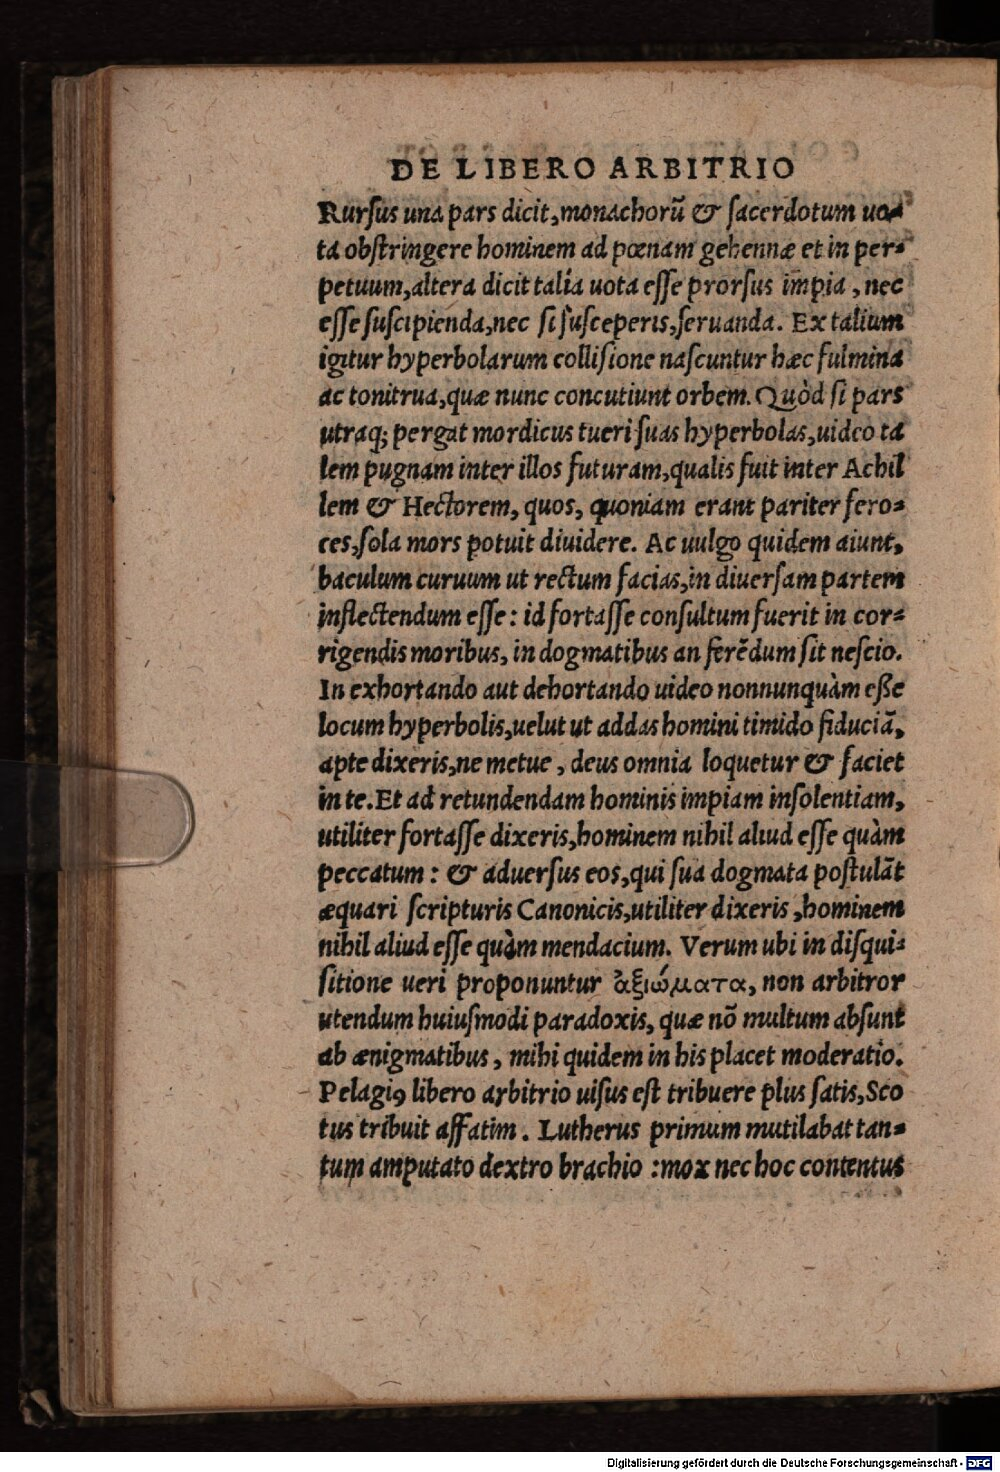 DE LIBERO ARBITRIO
Rurſus una pars dicit, monachorũ & ſacerdotum uo-
ta obſtringere hominem ad pœnam gehennæ et in per-
petuum, altera dicit talia uota eſſe prorſus impia, nec
eſſe ſuſcipienda, nec ſi ſuſceperis, ſeruanda. Ex talium
igitur hyperbolarum colliſione naſcuntur hæc fulmina
ac tonitrua, quæ nunc concutiunt orbem. Quòd ſi pars
utraq; pergat mordicus tueri ſuas hyperbolas, uideo ta
lem pugnam inter illos futuram, qualis fuit inter Achil
lem & Hectorem, quos, quoniam erant pariter fero-
ces, ſola mors potuit diuidere. Ac uulgo quidem aiunt,
baculum curuum ut rectum facias, in diuerſam partem
inflectendum eſſe: id fortaſſe conſultum fuerit in cor-
rigendis moribus, in dogmatibus an ferẽdum ſit neſcio.
In exhortando aut dehortando uideo nonnunquàm eße
locum hyperbolis, uelut ut addas homini timido fiduciã,
apte dixeris, ne metue, deus omnia loquetur & faciet
in te. Et ad retundendam hominis impiam inſolentiam,
utiliter fortaſſe dixeris, hominem nihil aliud eſſe quàm
peccatum: & aduerſus eos, qui ſua dogmata poſtulãt
æquari ſcripturis Canonicis, utiliter dixeris, hominem
nihil aliud eſſe quàm mendacium. Verum ubi in diſqui-
ſitione ueri proponuntur ἀξιώματα, non arbitror
utendum huiuſmodi paradoxis, quæ nõ multum abſunt
ab ænigmatibus, mihi quidem in his placet moderatio.
Pelagiꝰ libero arbitrio uiſus eſt tribuere plus ſatis, Sco
tus tribuit affatim. Lutherus primum mutilabat tan-
tum amputato dextro brachio: mox nec hoc contentus
Digitalisierung gefördert durch die Deutsche Forschungsgemeinschaft - DFG